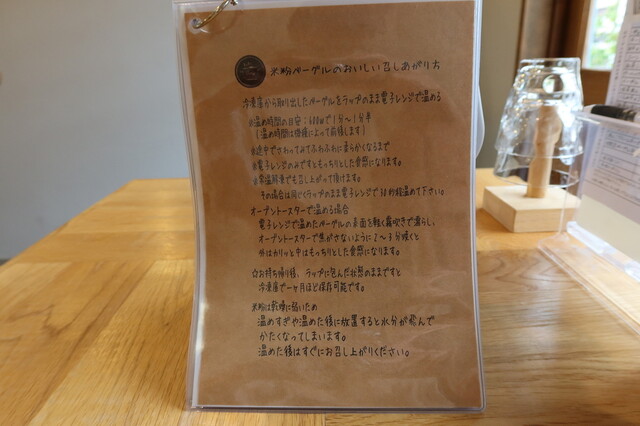 米粉ベーグルのおいしい召しあがり方
冷凍庫から取り出したベーグルをラップのまま電子レンジで温める
※温め時間の目安：600wで1分〜1分半
(温め時間は機種によって前後します)
※途中でさわってみてふわふわに柔らかくなるまで
※電子レンジのみですともっちりとした食感になります。
※常温解凍でも召し上がって頂けます。
その場合は同じくラップのまま電子レンジで30秒程温めて下さい。
オーブントースターで温める場合
電子レンジで温めたベーグルの表面を軽く霧吹きで濡らし、
オーブントースターで焦がさないように2〜3分焼くと
外はカリッと中はもっちりとした食感になります。
☆お持ち帰り後、ラップに包んだ状態のままですと
冷凍庫で一ヶ月ほど保存可能です。
米粉は乾燥に弱いため
温めすぎや温めた後に放置すると水分が飛んで
かたくなってしまいます。
温めた後はすぐにお召し上がりください。